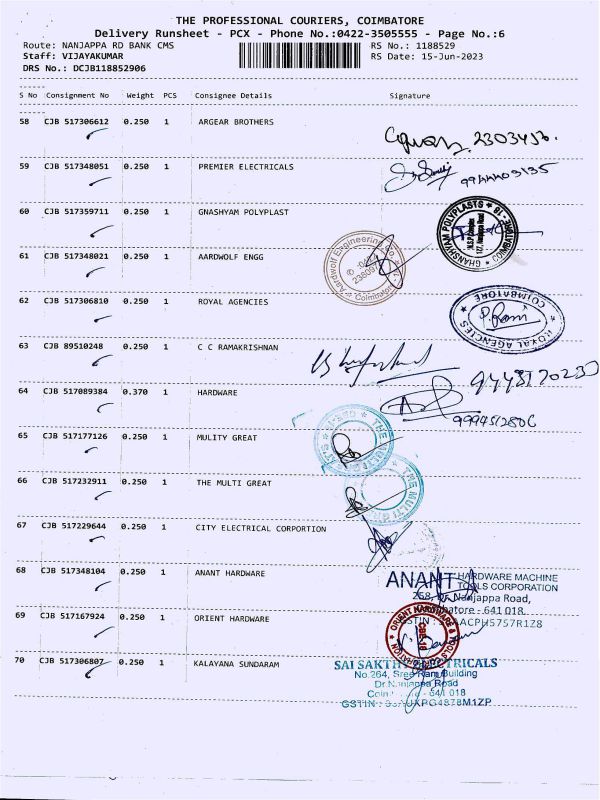 THE PROFESSIONAL COURIERS, COIMBATORE
Delivery Runsheet - PCX - Phone No.:0422-3505555 - Page No.:6
Route: NANJAPPA RD BANK CMS RS No.: 1188529
Staff: VIJAYAKUMAR RS Date: 15-Jun-2023
DRS No.: DCJB118852906
S No Consignment No Weight PCS Consignee Details Signature
58 CJB 517306612 0.250 1 ARGEAR BROTHERS
59 CJB 517348051 0.250 1 PREMIER ELECTRICALS
60 CJB 517359711 0.250 1 GNASHYAM POLYPLAST
GHANSHYAM POLYPLASTS
COIMBATORE - 18
61 CJB 517348021 0.250 1 AARDWOLF ENGG
Aardwolf Engineering
Coimbatore
62 CJB 517306810 0.250 1 ROYAL AGENCIES
COIMBATORE
ROYAL AGENCIES
63 CJB 89510248 0.250 1 C C RAMAKRISHNAN
64 CJB 517089384 0.370 1 HARDWARE
65 CJB 517177126 0.250 1 MULITY GREAT
66 CJB 517232911 0.250 1 THE MULTI GREAT
THE MULTI
67 CJB 517229644 0.250 1 CITY ELECTRICAL CORPORTION
68 CJB 517348104 0.250 1 ANANT HARDWARE
ANANT HARDWARE MACHINE
TOOLS CORPORATION
Nanjappa Road,
641 018
69 CJB 517167924 0.250 1 ORIENT HARDWARE
ORIENT HARDWARE &
CBE-18
70 CJB 517306807 0.250 1 KALAYANA SUNDARAM
SAI SAKTHI ELECTRICALS
No.264, Sree Ram Building
Dr.Nanjappa Road
641 018